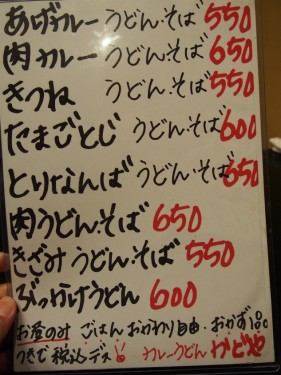 あげカレーうどん・そば 550
肉カレーうどん・そば 650
きつね うどん・そば 550
たまごとじ うどん・そば 600
とりなんば うどん・そば 650
肉うどん・そば 650
きざみうどん・そば 550
ぶっかけうどん 600
お昼のみ ごはんおかわり自由・おかず1品
つきで税込デス! カレーうどん かどや